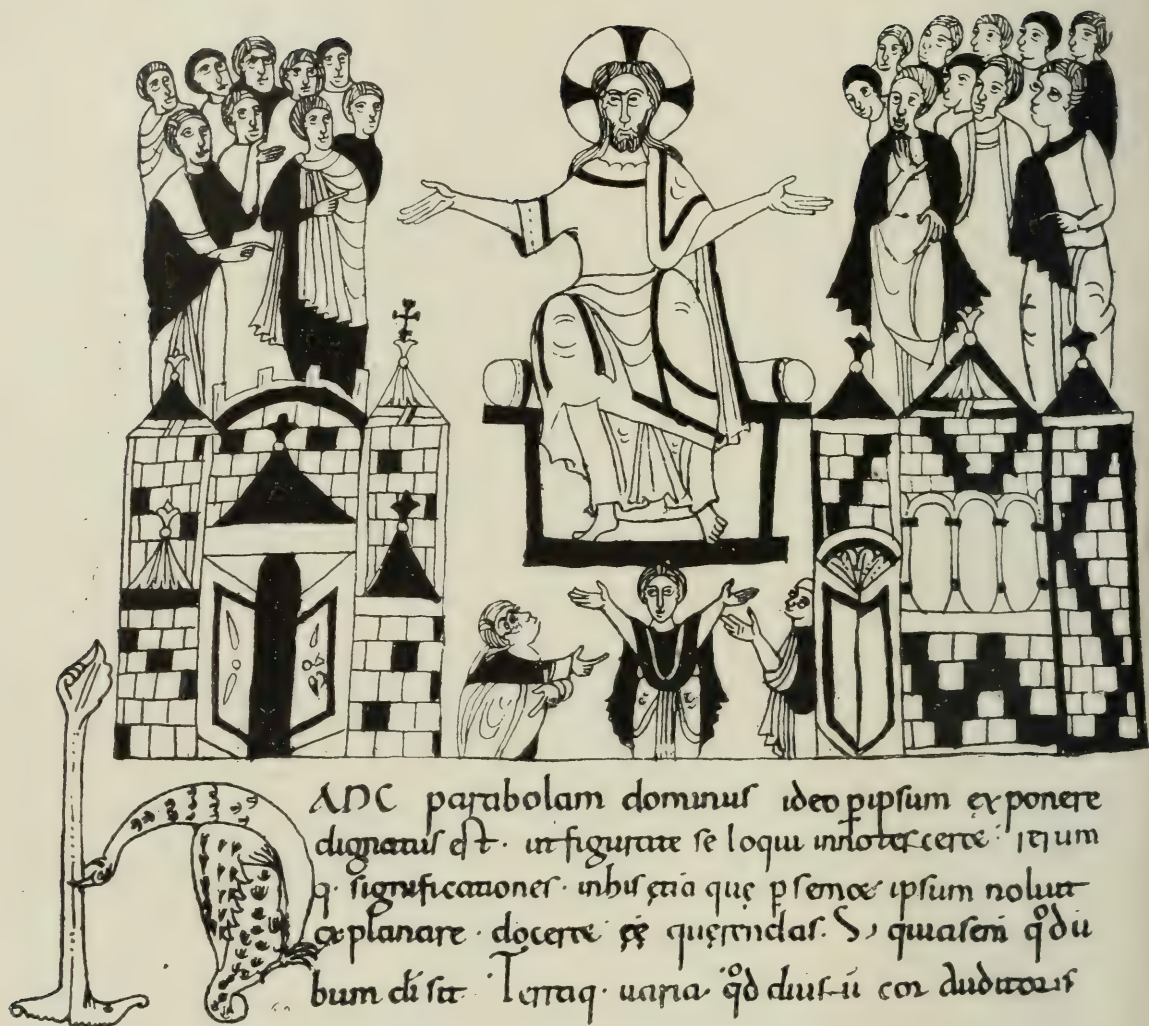 HANC parabolam dominus ideo p ipsum exponere
dignatus est · ut figurate se loqui innotesceret · rerum
q· significationes · in his etiā quę p semet ipsum noluit
explanare · docere ęē quęrendas. S; quia semē qđ dī
bum dī sit. Terraq· uaria · qđ diuersū cor auditoris